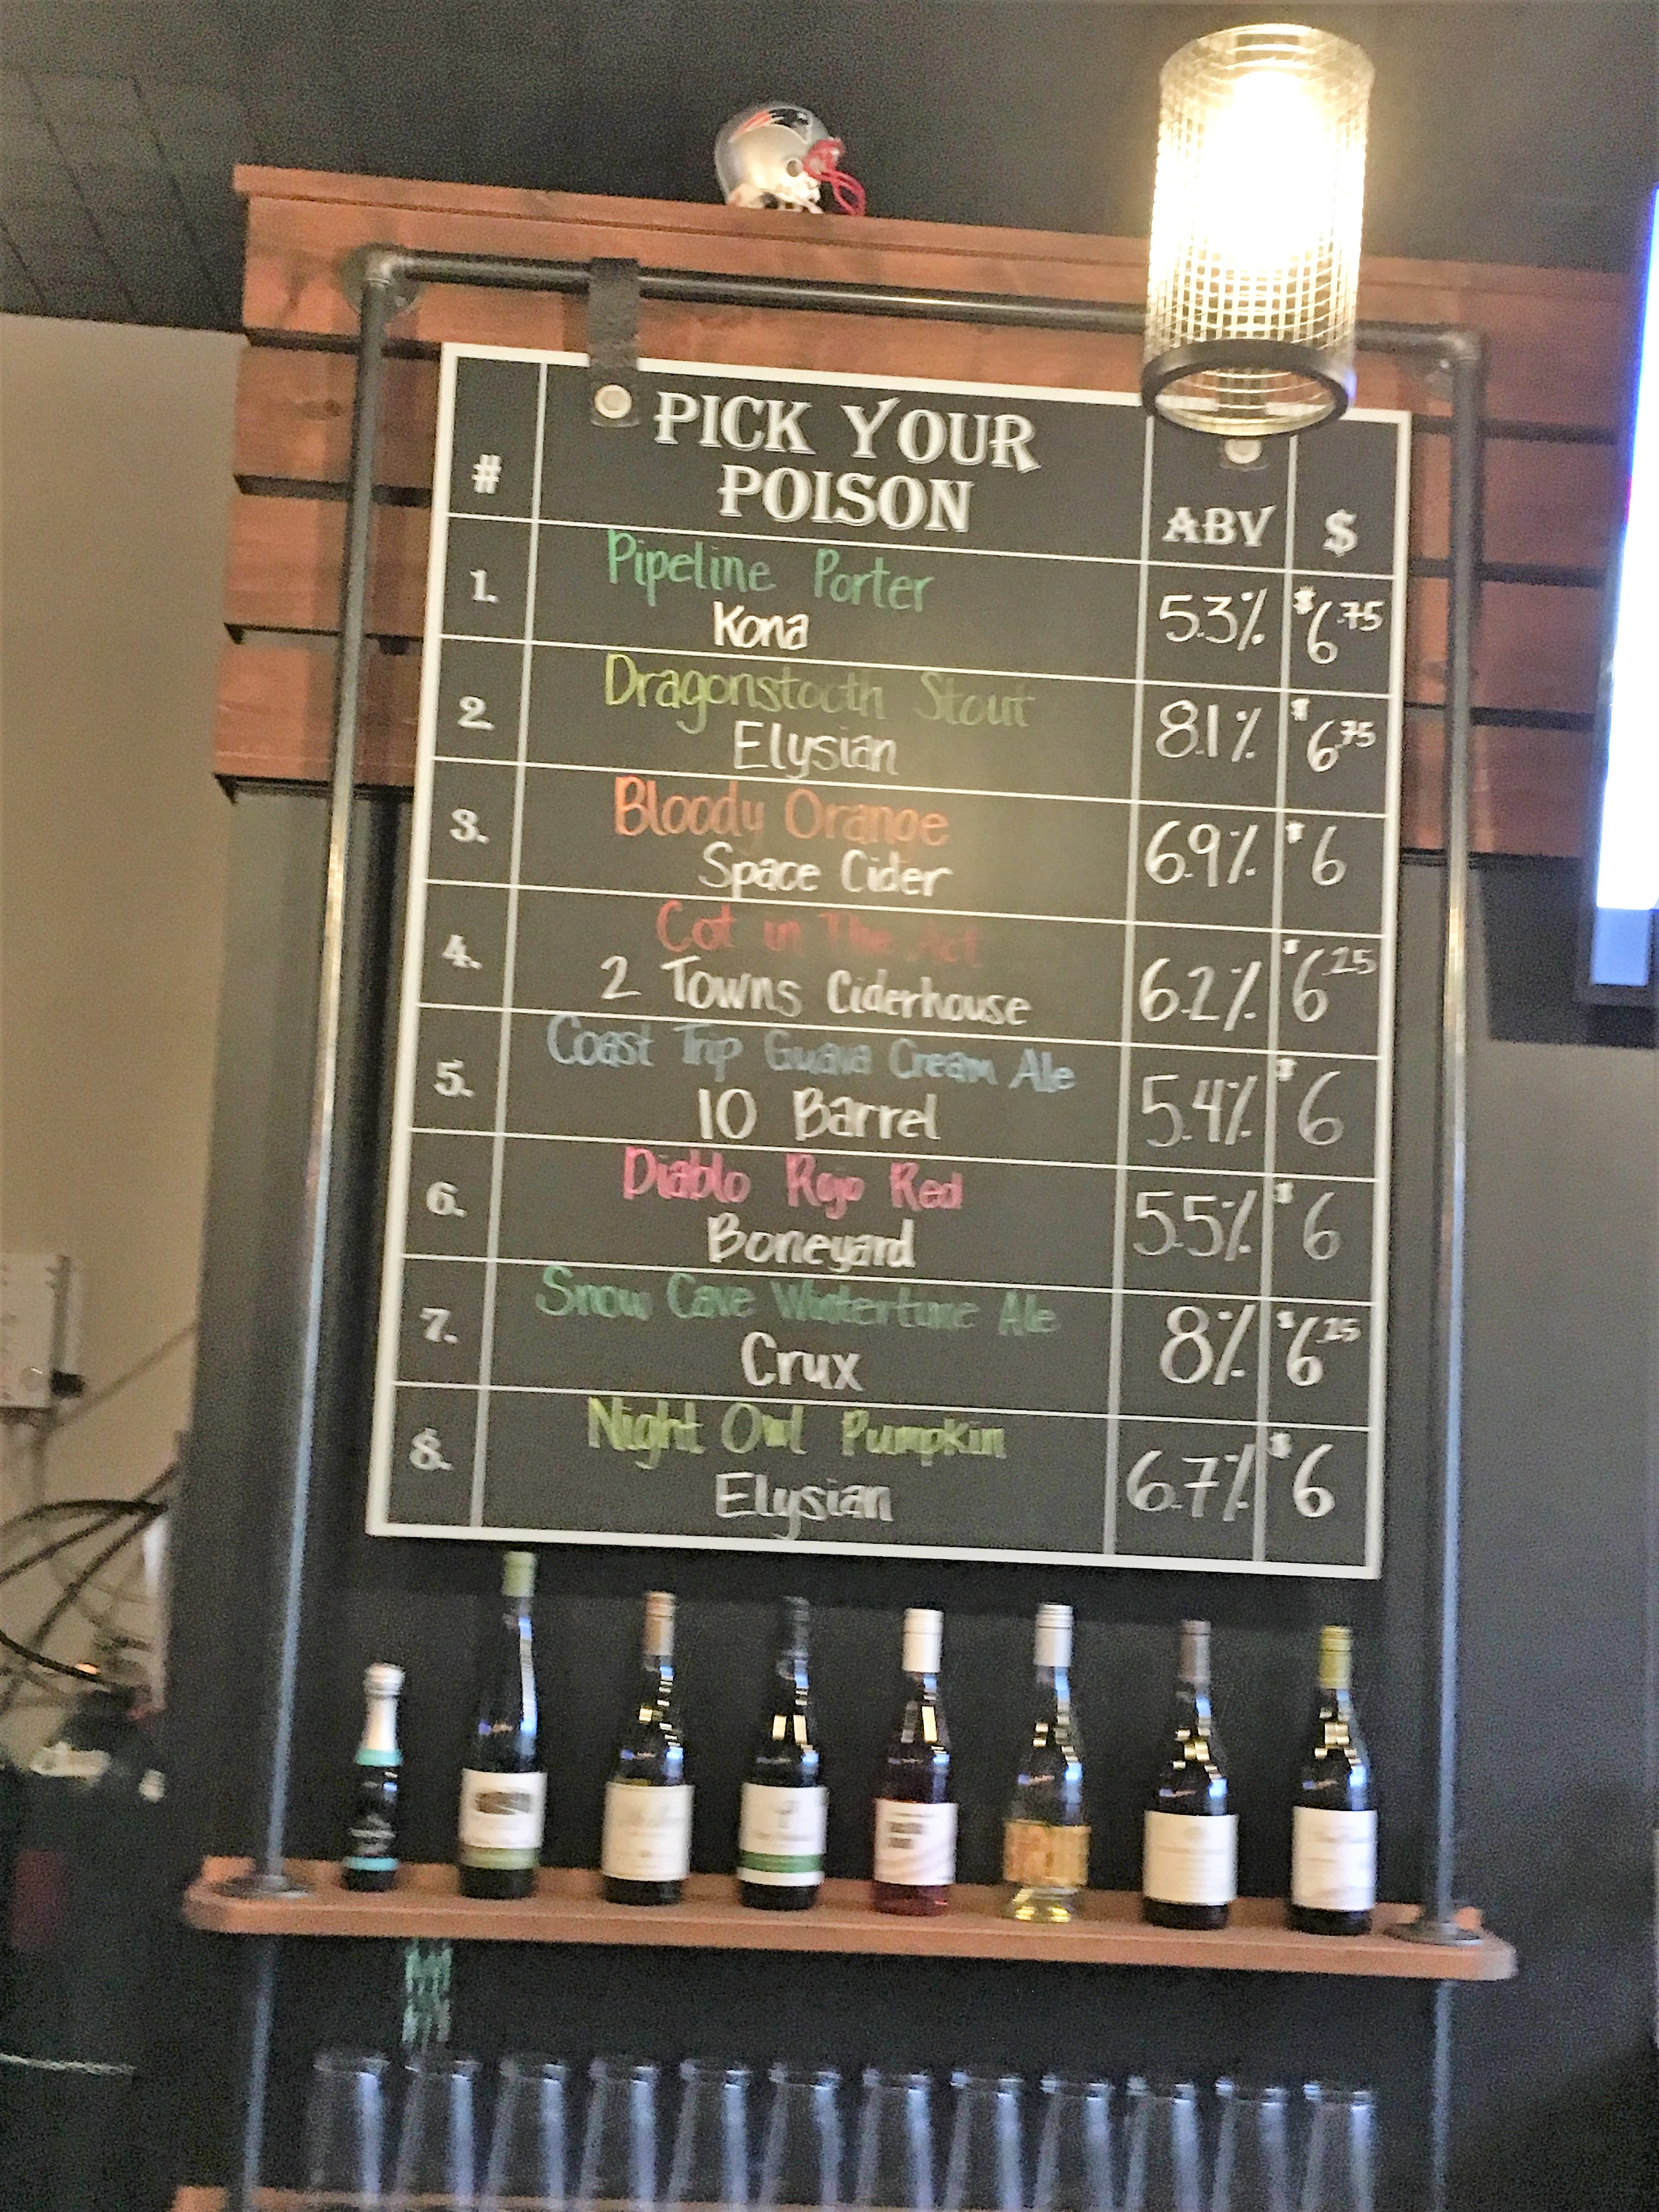 #
PICK YOUR
POISON
ABV
$
1.
Pipeline Porter
Kona
5.3%
$6.75
2.
Dragonstooth Stout
Elysian
8.1%
$6.75
3.
Bloody Orange
Space Cider
6.9%
$6
4.
Cot in The Act
2 Towns Ciderhouse
6.2%
$6.25
5.
Coast Trip Guava Cream Ale
10 Barrel
5.4%
$6
6.
Diablo Rojo Red
Boneyard
5.5%
$6
7.
Snow Cave Wintertime Ale
Crux
8%
$6.25
8.
Night Owl Pumpkin
Elysian
6.7%
$6